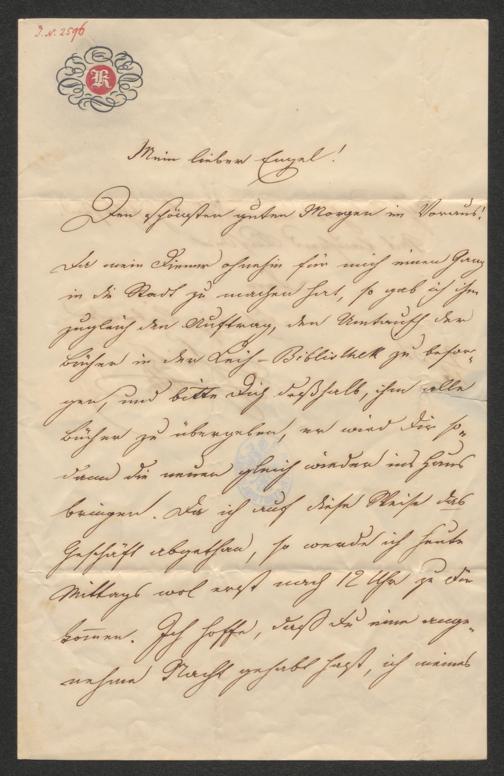 I. N. 2596
R
Mein lieber Engel!
Den schönsten guten Morgen im Voraus!
Da mein Diener ohnehin für mich einen Gang
in die Stadt zu machen hat, so gab ich ihm
zugleich den Auftrag, den Umtausch der
Bücher in der Leih-Bibliothek zu besor-
gen, und bitte Dich deßhalb, ihm alle
Bücher zu übergeben, er wird Dir so-
dann die neuen gleich wieder ins Haus
bringen. Da ich auf diese Weise das
Geschäft abgethan, so werde ich heute
Mittags wol erst nach 12 Uhr zu Dir
kommen. Ich hoffe, daß Du eine ange-
nehme Nacht gehabt hast, ich meines